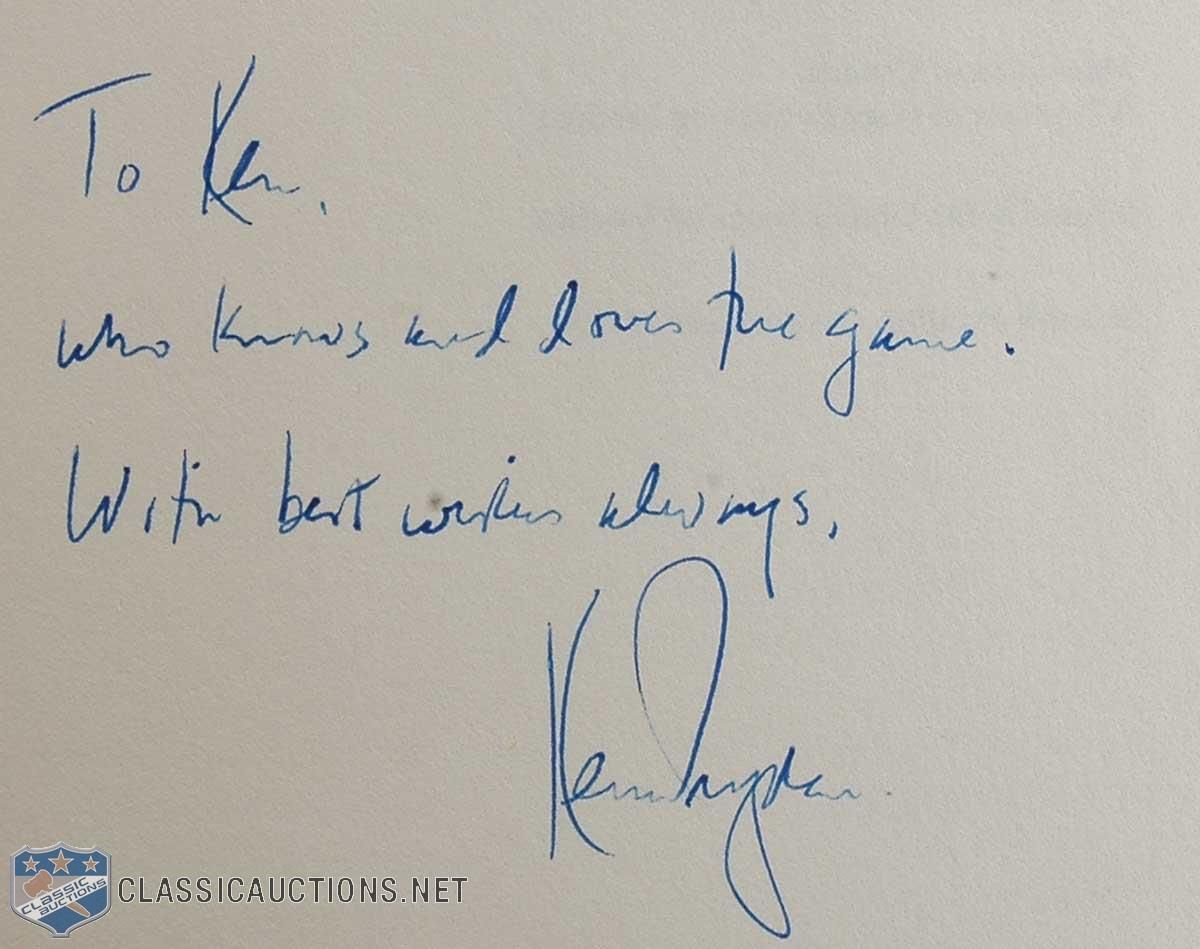 To Ken,
who knows and loves the game.
With best wishes always,
Ken Dryden
CLASSIC
AUCTIONS
CLASSICAUCTIONS.NET